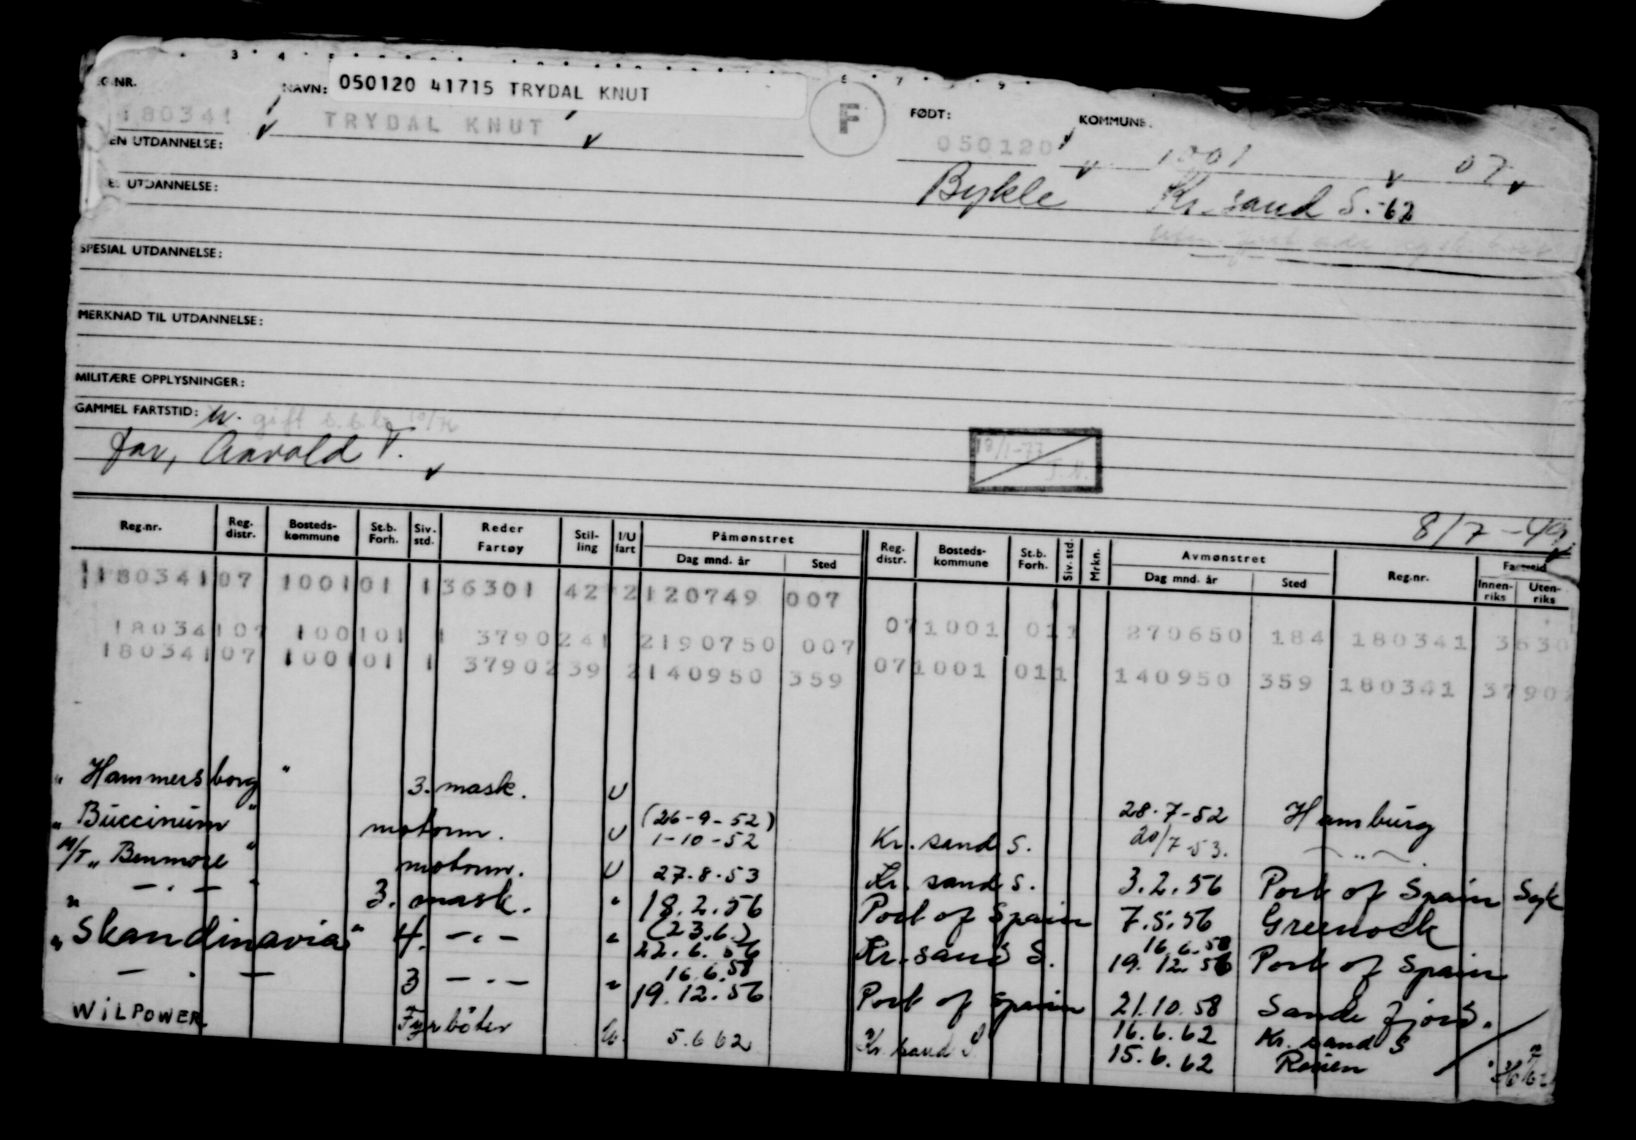 3 4 5 6 7 9
G.NR. NAVN: 050120 41715 TRYDAL KNUT F FØDT: KOMMUNE.
180341 TRYDAL KNUT 050120 1001 07
EN UTDANNELSE:
Bykle Kr.sand S.-62
E. UTDANNELSE:
SPESIAL UTDANNELSE:
MERKNAD TIL UTDANNELSE:
MILITÆRE OPPLYSNINGER:
GAMMEL FARTSTID: gift
far, Aavald T.
18/1-77
8/7-49
Reg.nr. Reg. distr. Bosteds- kommune St.b. Forh. Siv. std. Reder Fartøy Stil- ling I/U fart Påmønstret Dag mnd. år Sted Reg. distr. Bosteds- kommune St.b. Forh. Siv. std. Mrkn. Avmønstret Dag mnd. år Sted Reg.nr. Fartstid Innen- riks Uten- riks
180341 07 1001 01 1 36301 42 2 120749 007
180341 07 1001 01 1 37902 41 2 190750 007 07 1001 01 1 270650 184 180341 3630
180341 07 1001 01 1 37902 39 2 140950 359 07 1001 01 1 140950 359 180341 3790
" Hammersborg " 3. mask. U 28-7-52 Hamburg
" Buccinum " motorm. U (26-9-52) 1-10-52 Kr.sand S. 20/7-53. — " —
M/T " Benmore " motorm. U 27.8.53 Kr.sand S. 3.2.56 Port of Spain Syk
" — . — " 3. mask. " 18.2.56 Port of Spain 7.5.56 Greenock
" Skandinavia " 4. — . — " (23.6.) 22.6.56 Kr.sand S. 16.6.58 19.12.56 Port of Spain
— . — 3 — . — " 16.6.58 19.12.56 Port of Spain 21.10.58 Sandefjord.
WILPOWER. Fyrbøter U. 5.6 62 Kr.sand S. 16.6.62 Kr.sand S
15.6.62 Rouen